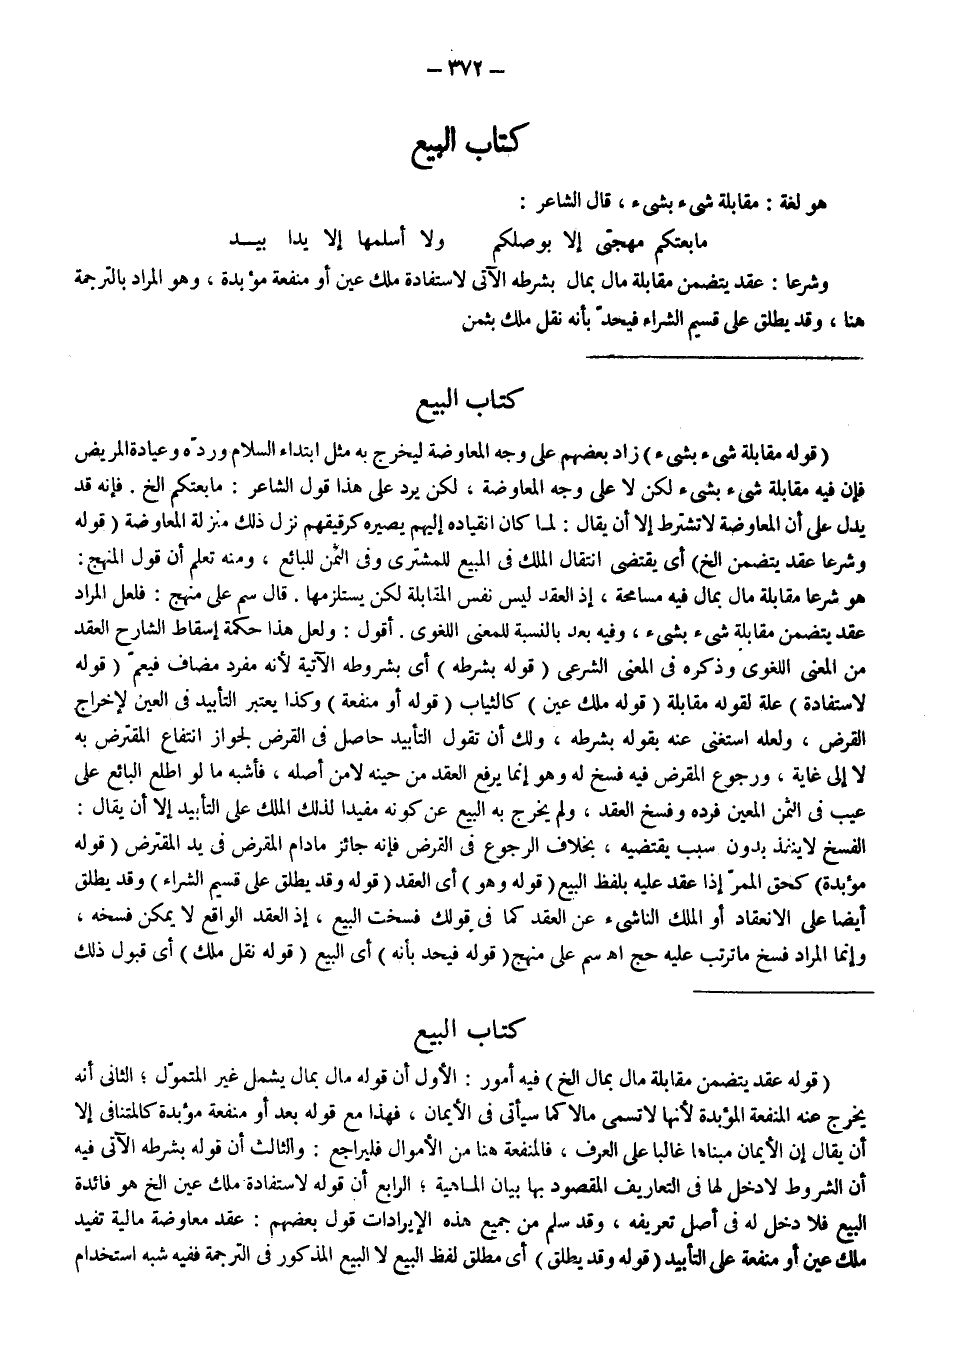 – ٣٧٢ –
كتاب البيع
هو لغة : مقابلة شىء بشىء ، قال الشاعر :
مابعتكم مهجتى إلا بوصلكم ولا أسلمها إلا يدا بيــد
وشرعا : عقد يتضمن مقابلة مال بمال بشرطه الآتى لاستفادة ملك عين أو منفعة مؤبدة ، وهو المراد بالترجمة
هنا ، وقد يطلق على قسيم الشراء فيحدّ بأنه نقل ملك بثمن
كتاب البيع
( قوله مقابلة شىء بشىء ) زاد بعضهم على وجه المعاوضة ليخرج به مثل ابتداء السلام وردّه وعيادة المريض
فإن فيه مقابلة شىء بشىء لكن لا على وجه المعاوضة ، لكن يرد على هذا قول الشاعر : مابعتكم الخ . فإنه قد
يدل على أن المعاوضة لاتشترط إلا أن يقال : لمـا كان انقياده إليهم يصيره كرقيقهم نزل ذلك منزلة المعاوضة ( قوله
وشرعا عقد يتضمن الخ) أى يقتضى انتقال الملك فى المبيع للمشترى وفى الثمن للبائع ، ومنه تعلم أن قول المنهج :
هو شرعا مقابلة مال بمال فيه مسامحة ، إذ العقد ليس نفس المقابلة لكن يستلزمها . قال سم على منهج : فلعل المراد
عقد يتضمن مقابلة شىء بشىء ، وفيه بعد بالنسبة للمعنى اللغوى . أقول : ولعل هذا حكمة إسقاط الشارح العقد
من المعنى اللغوى وذكره فى المعنى الشرعى ( قوله بشرطه ) أى بشروطه الآتية لأنه مفرد مضاف فيعمّ ( قوله
لاستفادة ) علة لقوله مقابلة ( قوله ملك عين ) كالثياب ( قوله أو منفعة ) وكذا يعتبر التأبيد فى العين لإخراج
القرض ، ولعله استغنى عنه بقوله بشرطه ، ولك أن تقول التأبيد حاصل فى القرض لجواز انتفاع المقترض به
لا إلى غاية ، ورجوع المقرض فيه فسخ له وهو إنما يرفع العقد من حينه لامن أصله ، فأشبه ما لو اطلع البائع على
عيب فى الثمن المعين فرده وفسخ العقد ، ولم يخرج به البيع عن كونه مفيدا لذلك الملك على التأبيد إلا أن يقال :
الفسخ لاينفذ بدون سبب يقتضيه ، بخلاف الرجوع فى القرض فإنه جائز مادام المقرض فى يد المقترض ( قوله
مؤبدة) كحق الممرّ إذا عقد عليه بلفظ البيع ( قوله وهو ) أى العقد ( قوله وقد يطلق على قسيم الشراء ) وقد يطلق
أيضا على الانعقاد أو الملك الناشىء عن العقد كما فى قولك فسخت البيع ، إذ العقد الواقع لا يمكن فسخه ،
وإنما المراد فسخ ماترتب عليه حج اهـ سم على منهج ( قوله فيحد بأنه ) أى البيع ( قوله نقل ملك ) أى قبول ذلك
كتاب البيع
( قوله عقد يتضمن مقابلة مال بمال الخ ) فيه أمور : الأول أن قوله مال بمال يشمل غير المتموّل ؛ الثانى أنه
يخرج عنه المنفعة المؤبدة لأنها لاتسمى مالا كما سيأتى فى الأيمان ، فهذا مع قوله بعد أو منفعة مؤبدة كالمتنافى إلا
أن يقال إن الأيمان مبناها غالبا على العرف ، فالمنفعة هنا من الأموال فليراجع : والثالث أن قوله بشرطه الآتى فيه
أن الشروط لادخل لها فى التعاريف المقصود بها بيان المـاهية ؛ الرابع أن قوله لاستفادة ملك عين الخ هو فائدة
البيع فلا دخل له فى أصل تعريفه ، وقد سلم من جميع هذه الإيرادات قول بعضهم : عقد معاوضة مالية تفيد
ملك عين أو منفعة على التأبيد ( قوله وقد يطلق ) أى مطلق لفظ البيع لا البيع المذكور فى الترجمة ففيه شبه استخدام